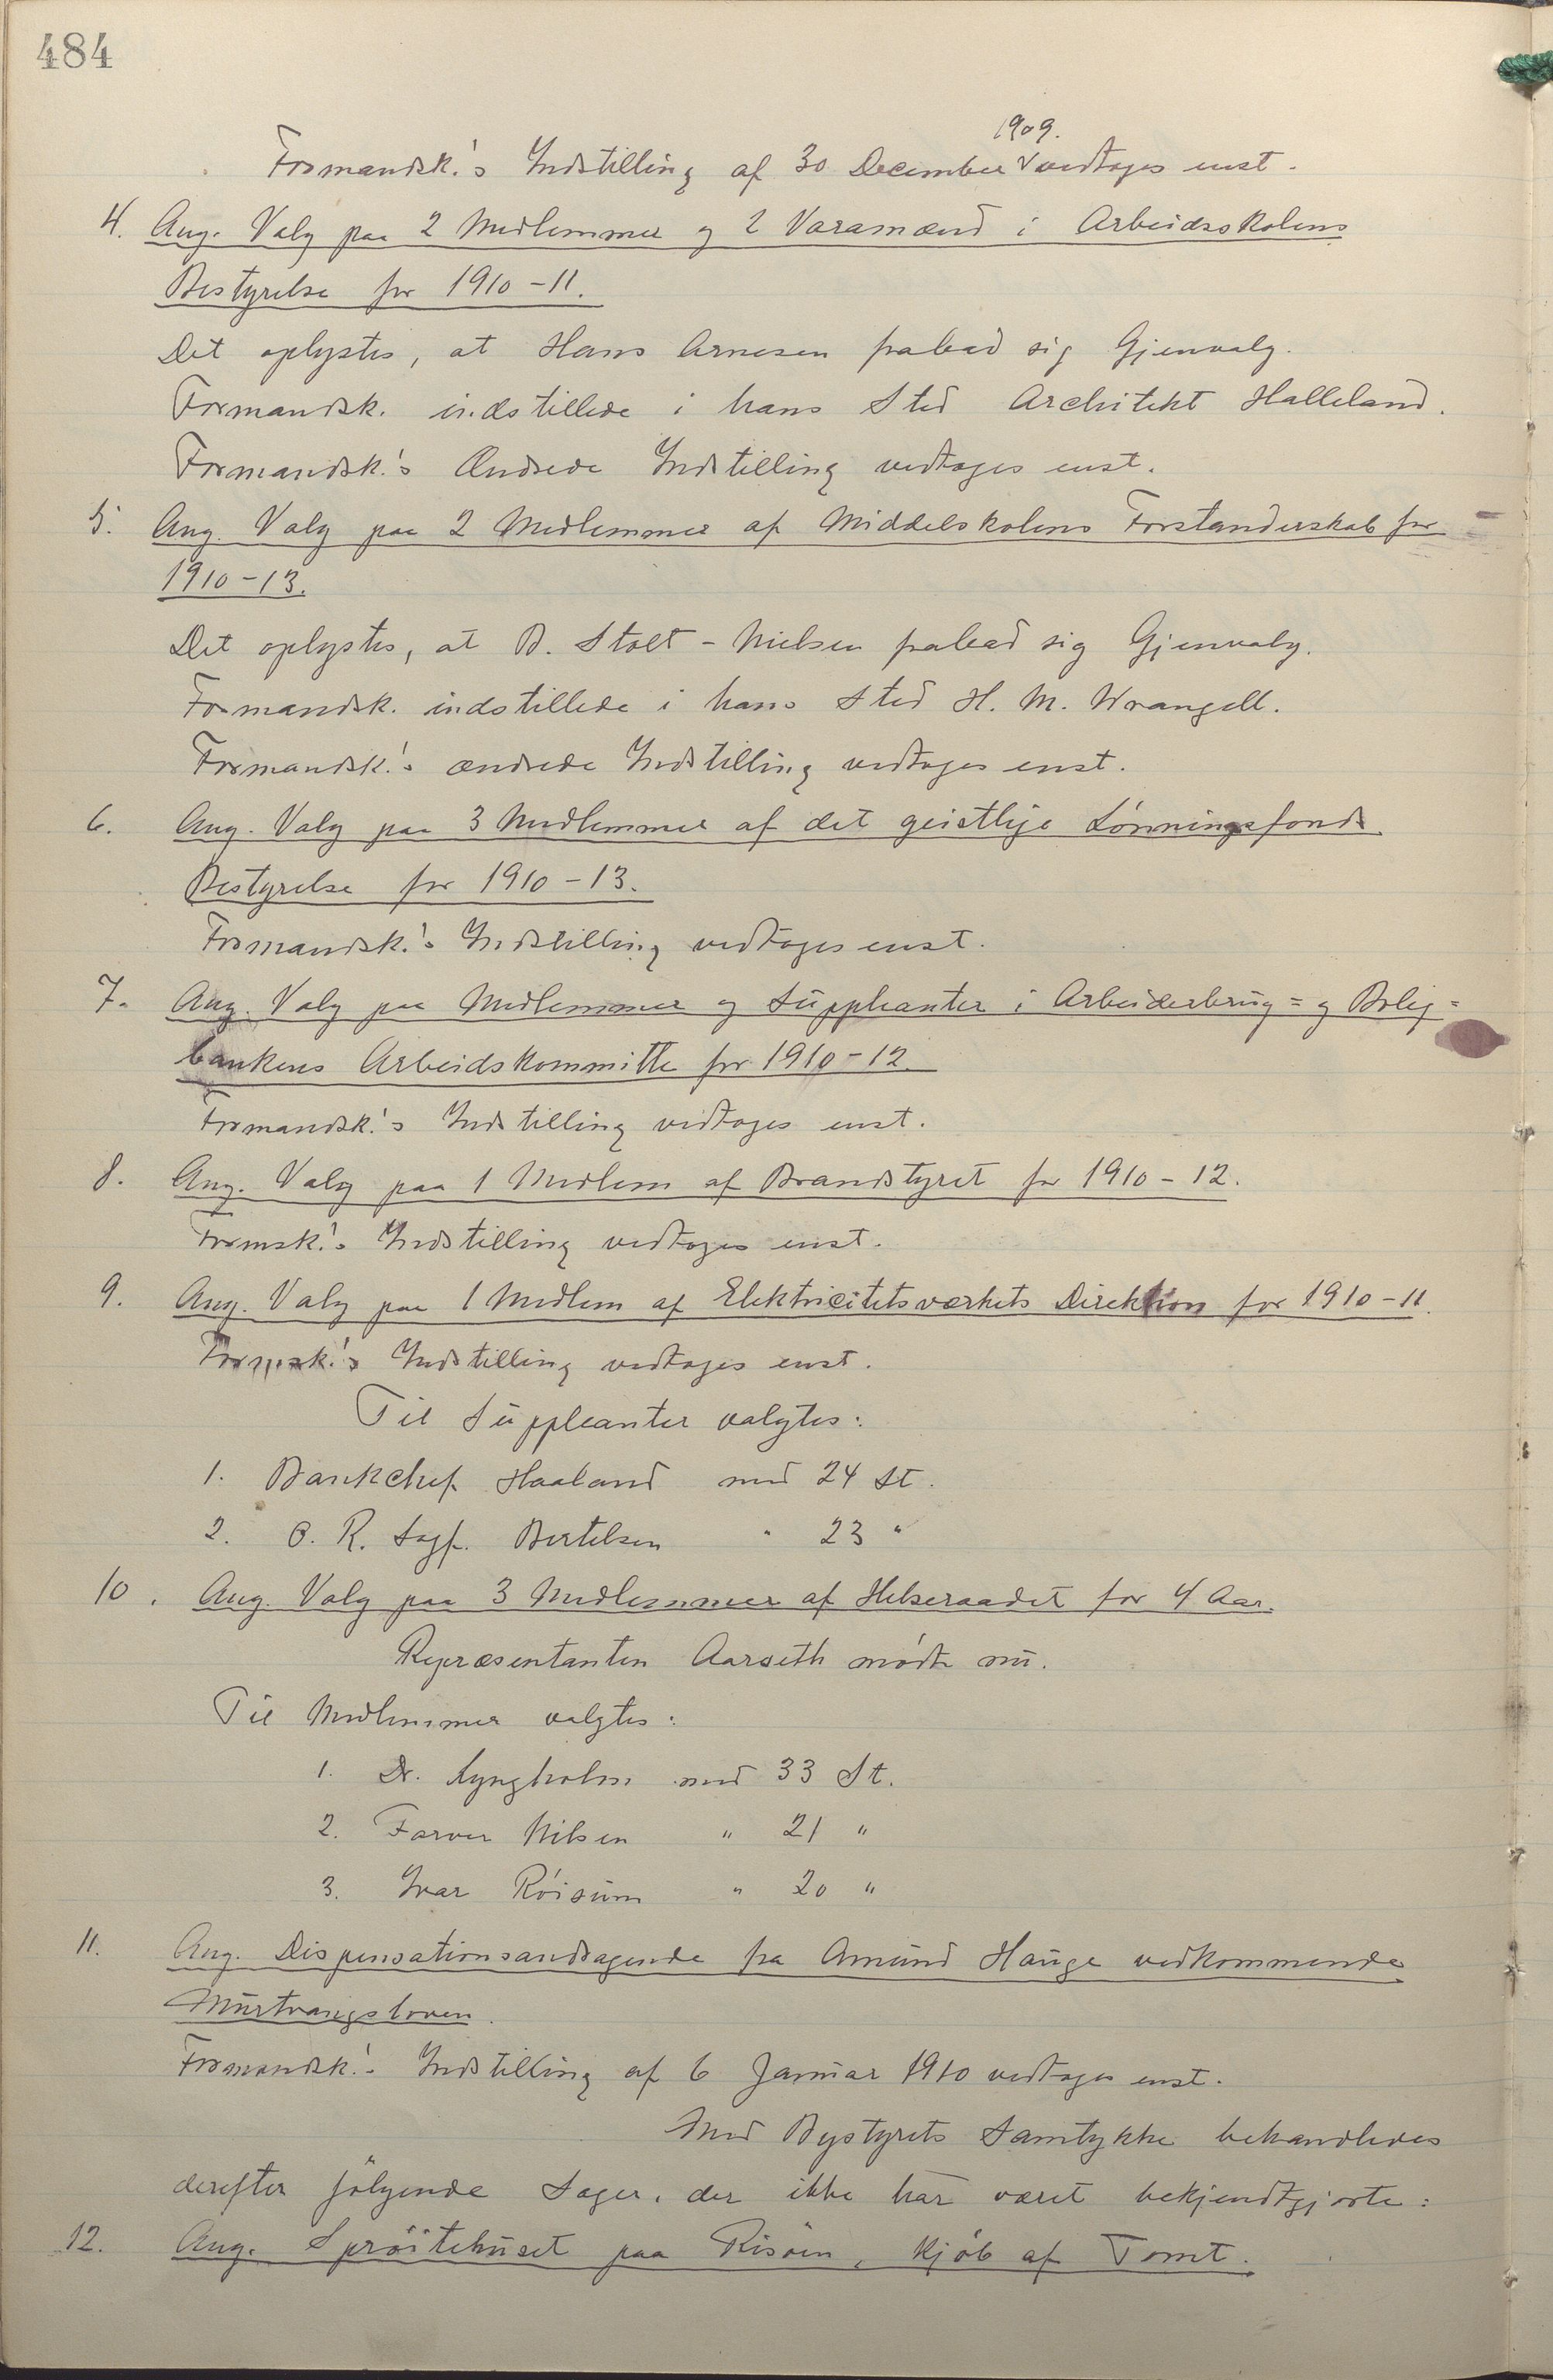 484
1909.
Formandsk.'s Indstilling af 30 December vedtoges enst.
4. Ang. Valg paa 2 Medlemmer og 2 Varamænd i Arbeidsskolens
Bestyrelse for 1910-11.
Det oplystes, at Hans Arnesen frabad sig Gjenvalg.
Formandsk. indstillede i hans Sted Architekt Halleland.
Formandsk.'s Ændrede Indstilling vedtoges enst.
5. Ang. Valg paa 2 Medlemmer af Middelskolens Forstanderskab for
1910-13.
Det oplystes, at B. Stolt-Nielsen frabad sig Gjenvalg.
Formandsk. indstillede i hans Sted H. M. Wrangell.
Formandsk.'s ændrede Indstilling vedtoges enst.
6. Ang. Valg paa 3 Medlemmer af det geistlige Lønningsfonds
Bestyrelse for 1910-13.
Formandsk.'s Indstilling vedtoges enst.
7. Ang. Valg paa Medlemmer og Suppleanter i Arbeiderbrug= og Bolig=
bankens Arbeidskommitte for 1910-12.
Formandsk.'s Indstilling vedtoges enst.
8. Ang. Valg paa 1 Medlem af Brandstyret for 1910-12.
Formsk.'s Indstilling vedtoges enst.
9. Ang. Valg paa 1 Medlem af Elektricitetsværkets Direktion for 1910-11.
Formsk.'s Indstilling vedtoges enst.
Til Suppleanter valgtes:
1. Bankchef Haaland med 24 St.
2. O. R. Sagf. Bertelsen " 23 "
10. Ang. Valg paa 3 Medlemmer af Helseraadet for 4 Aar.
Repræsentanten Aarseth mødte nu.
Til Medlemmer valgtes:
1. Dr. Lyngholm med 33 St.
2. Farver Nilsen " 21 "
3. Ivar Røisum " 20 "
11. Ang. Dispensationsandragende fra Amund Hauge vedkommende
Murtvangsloven.
Formandsk.'s Indstilling af 6 Januar 1910 vedtoges enst.
Med Bystyrets Samtykke behandledes
derefter følgende Sager, der ikke har været bekjendtgjorte:
12. Ang. Sprøitehuset paa Risøen, Kjøb af Tomt.